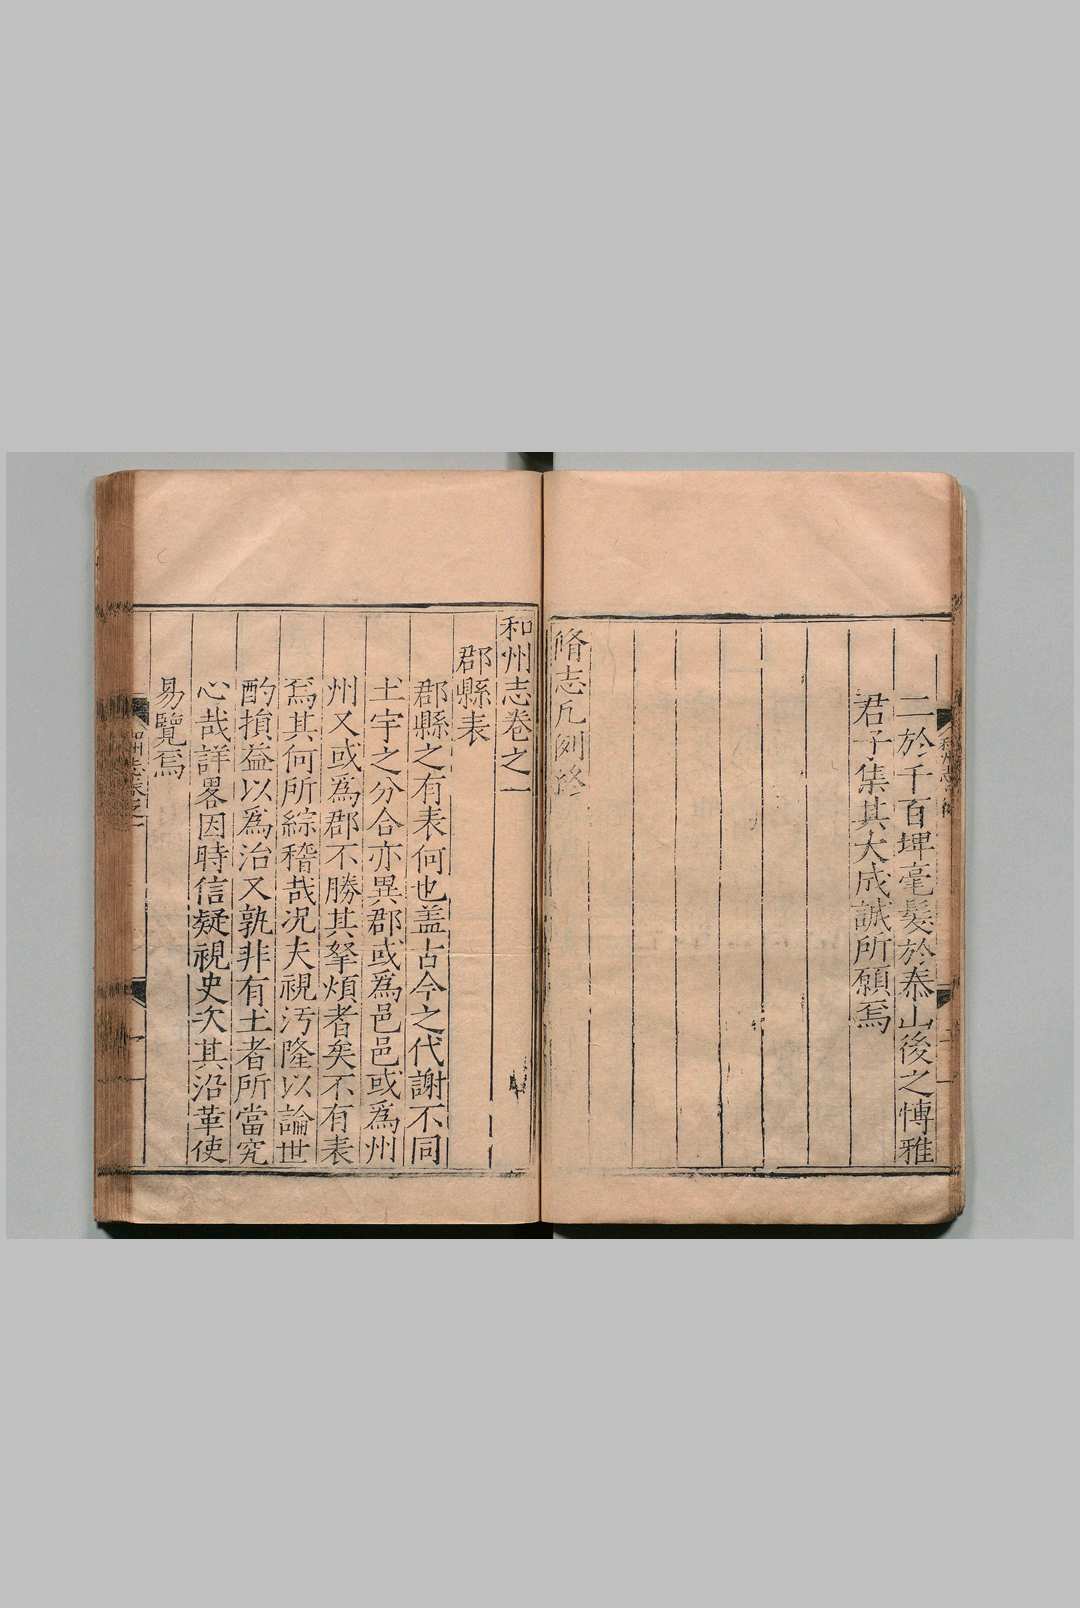 二於千百埤毫髮於泰山後之愽雅
君子集其大成誠所願焉
脩志凡例終
和州志卷之一
郡縣表
郡縣之有表何也盖古今之代謝不同
土宇之分合亦異郡或爲邑邑或爲州
州又或爲郡不勝其拏煩者矣不有表
焉其何所綜稽哉况夫視汚隆以論世
酌損益以爲治又孰非有土者所當究
心哉詳畧因時信疑視史次其沿革使
易覽焉
和州志表之一